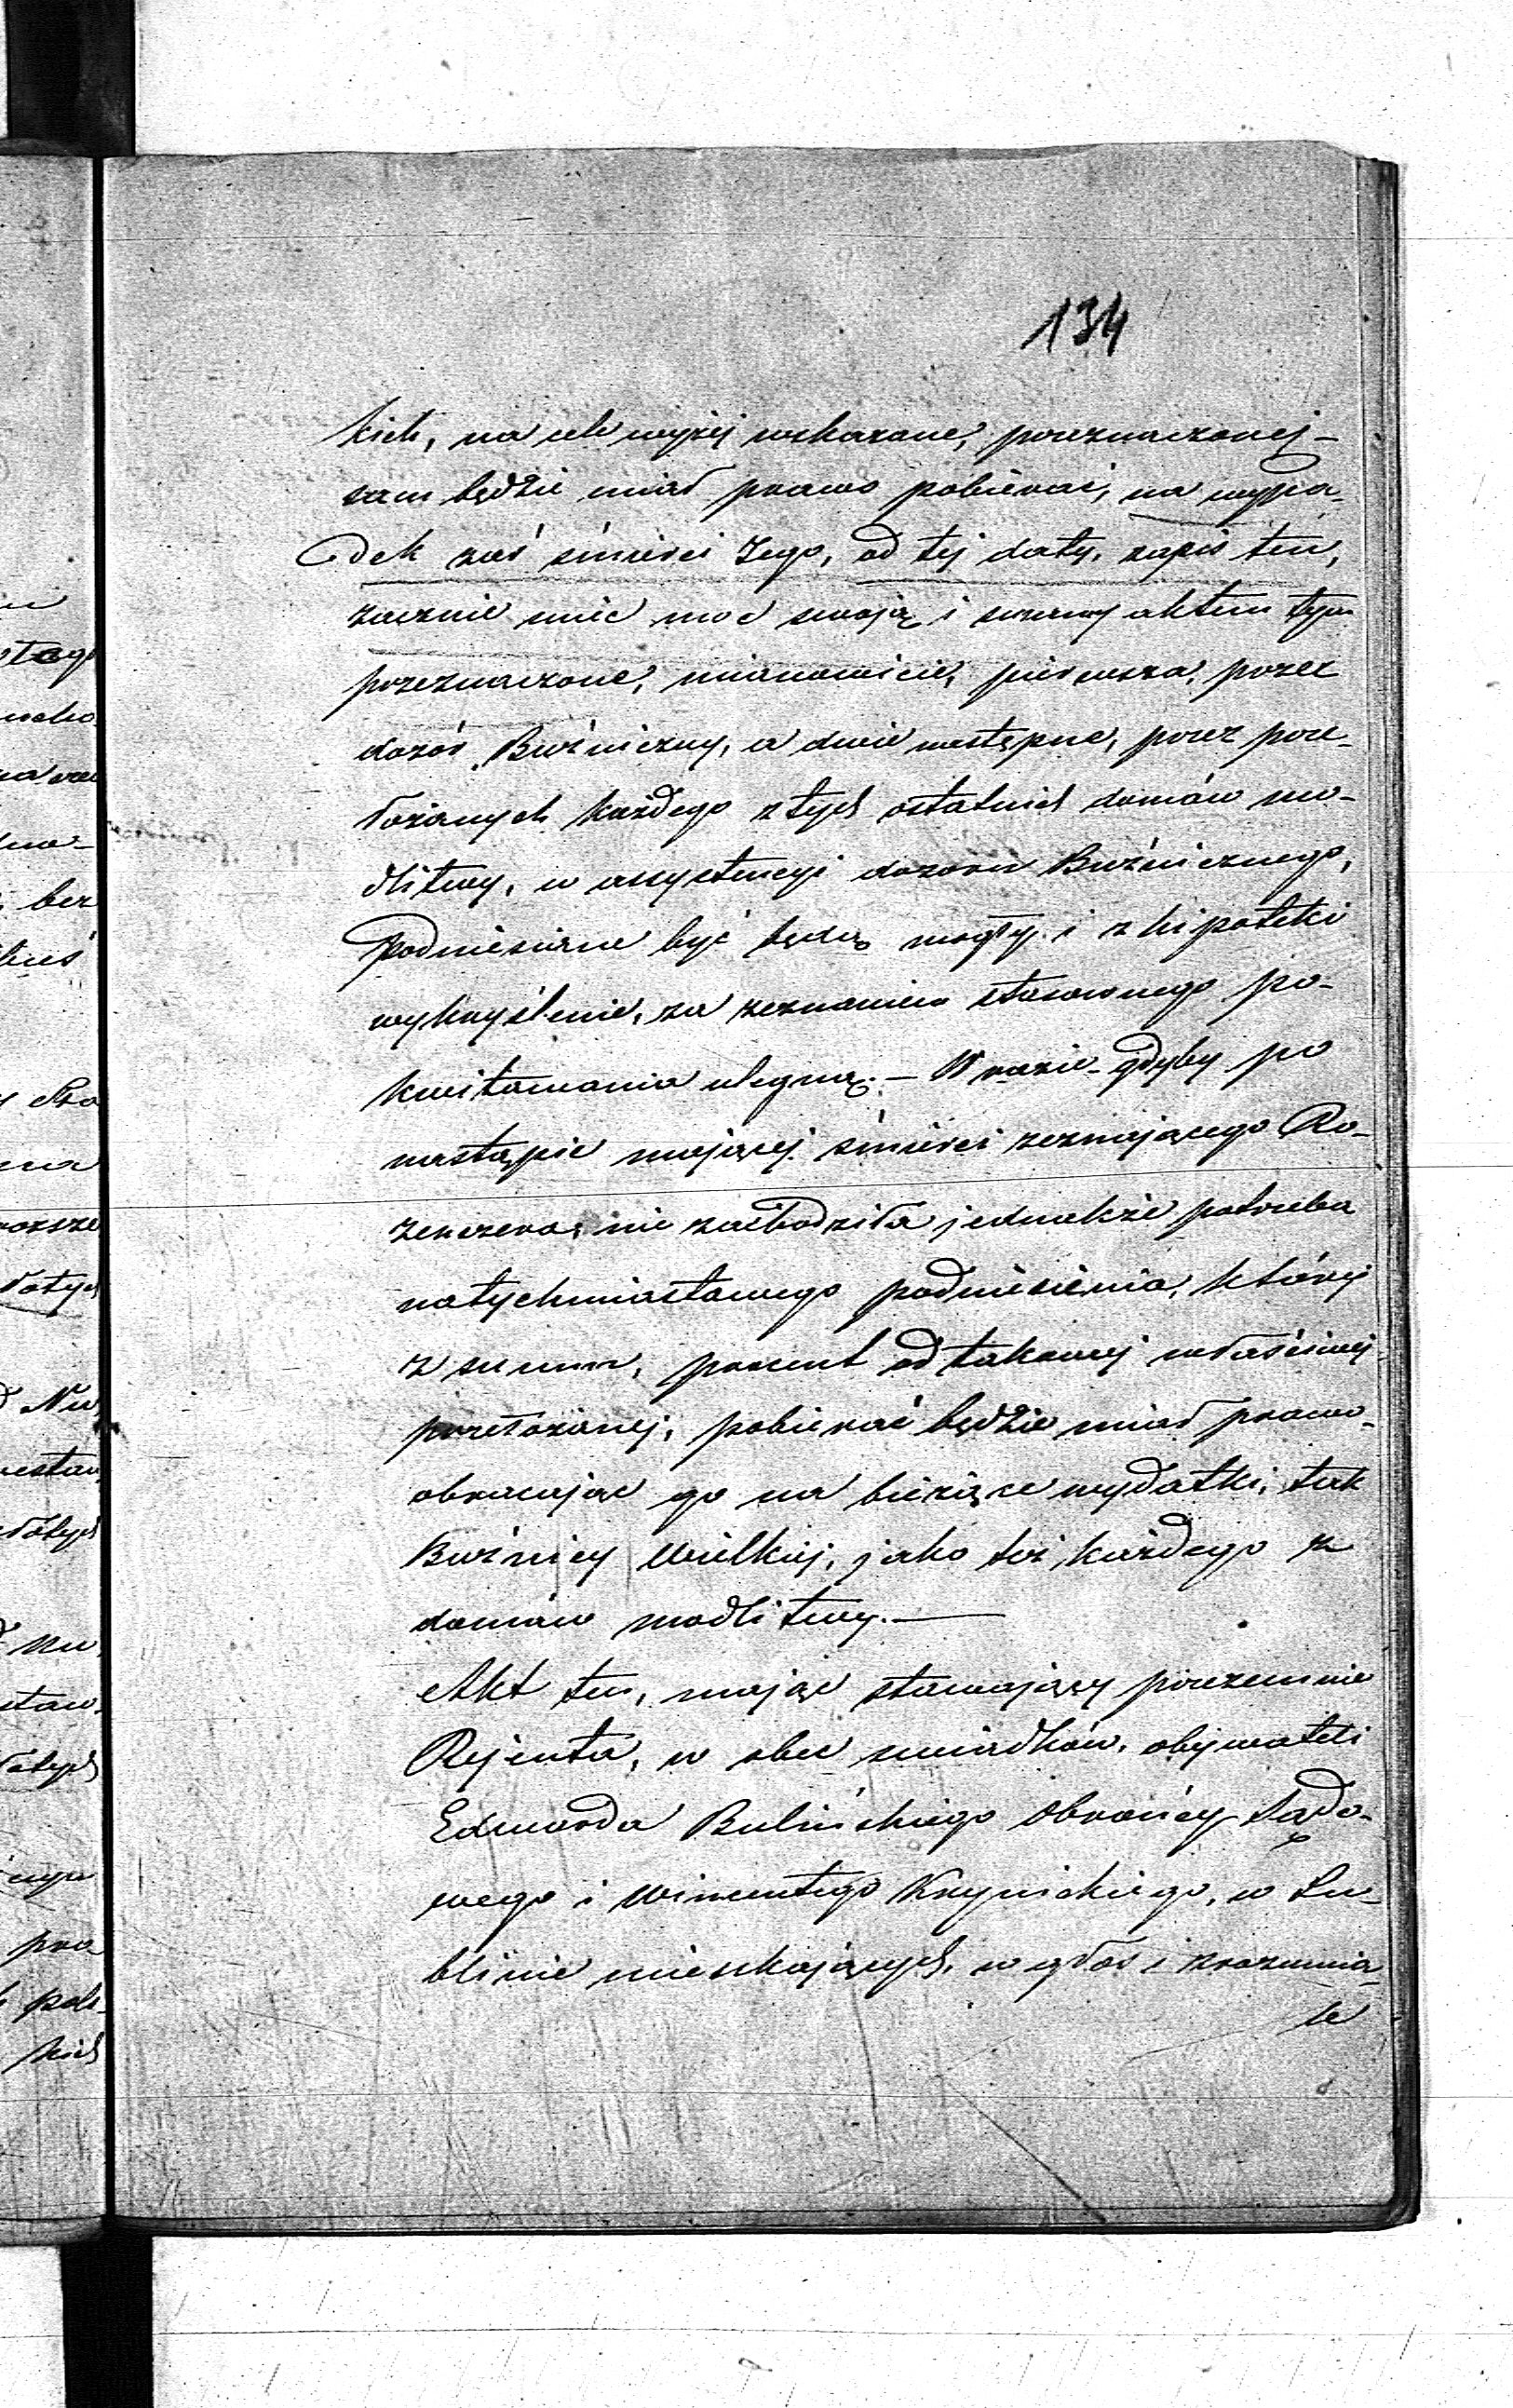 134
kich, na cele wyżej wskazane, przeznaczonej –
sam będzie miał prawo pobierać, na wypa-
dek zaś śmierci Jego, od tej daty, zapis ten,
zacznie mieć moc swoją i summy aktem tym
przeznaczone, mianowicie, pierwsza, przez
dozór Buźniczny, a dwie następne, przez prze-
łożonych każdego z tych ostatnich domów mo-
dlitwy, w assystencyi dozoru Buźnicznego,
podniesione być będą mogły i z hipoteki
wykryślenie, za zeznaniem stosownego po-
kwitowania ulegną. – W razie gdyby po
nastąpić mającej śmierci zeznającego Ro-
zenzena, nie zachodziła jednakże potrzeba
natychmiastowego podniesienia, której
z summ, procent od takowej właściwej
przełożonej, pobierać będzie miał prawo
obracając go na bieżące wydatki, tak
Buźnicy Wielkiej, jako też każdego z
domów modlitwy. —
Akt ten, mając stawający przezemnie
Rejenta, w obec świadków, obywateli
Edwarda Bulińskiego Obrońcy Sądo-
wego i Wincentego Krynickiego, w Lu-
blinie mieszkających, w głos i zrozumia-
le
pra
kich
bez